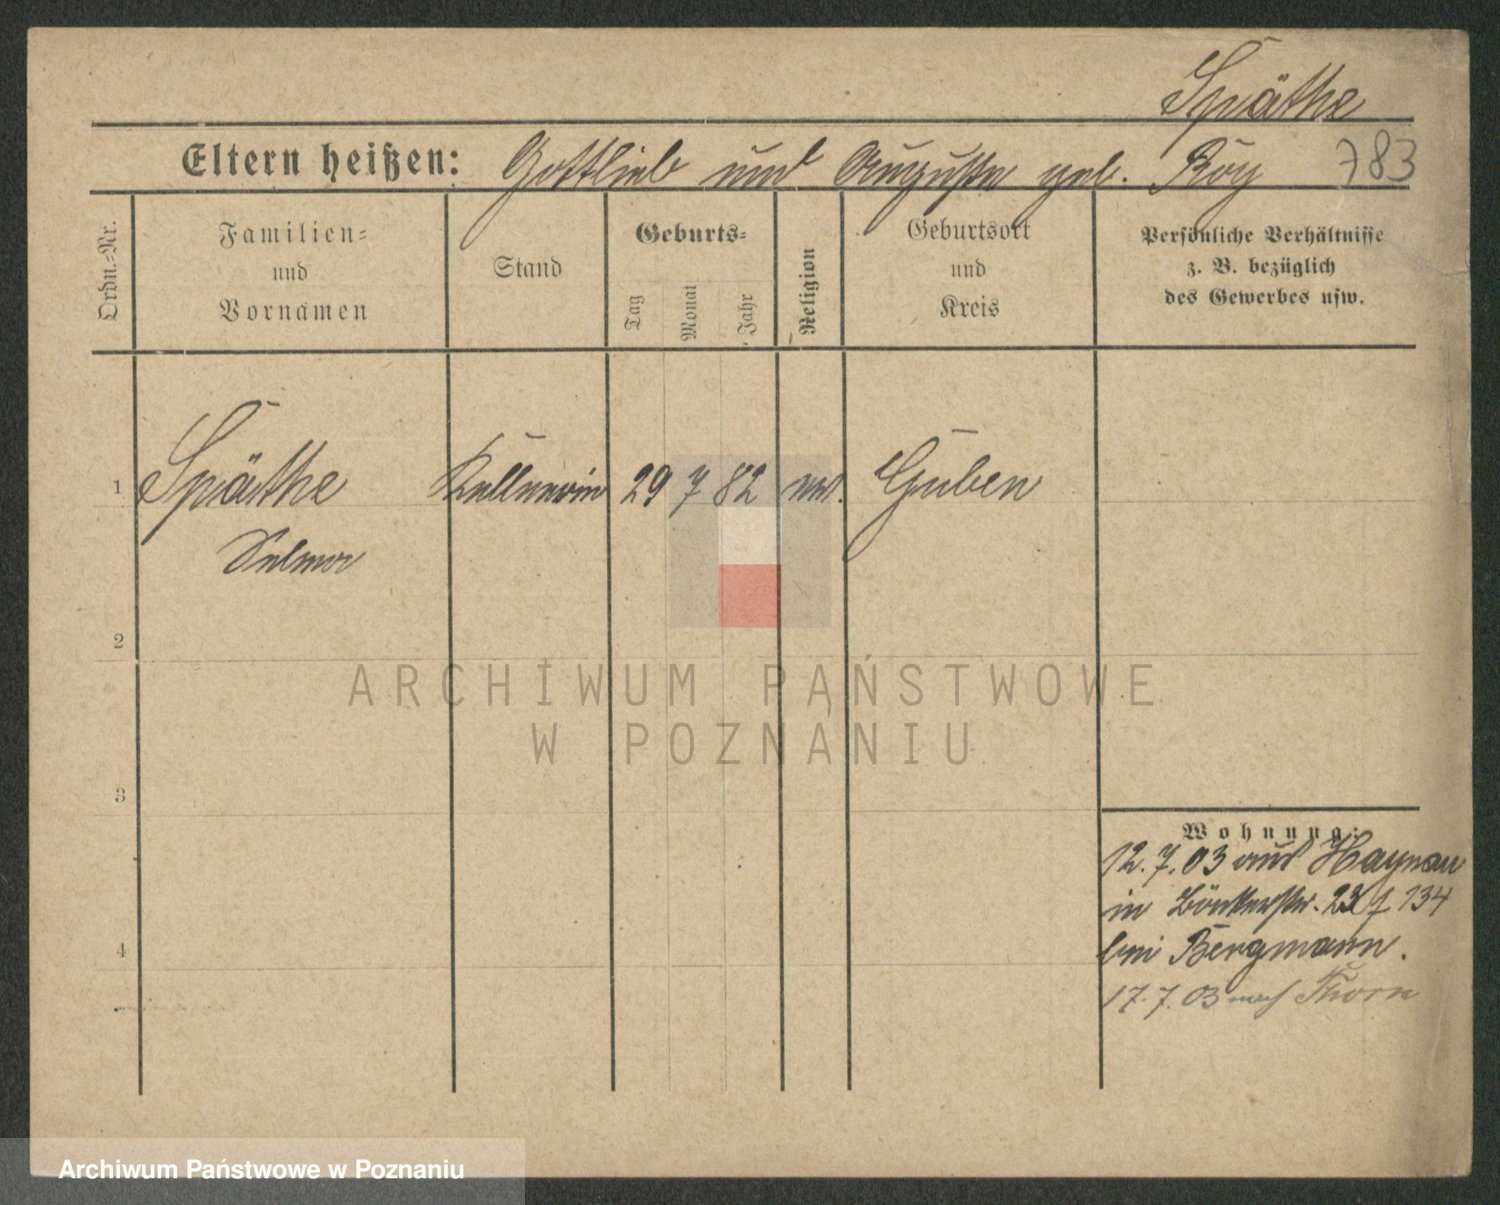 Späthe
Eltern heißen: Gottlieb und Auguste geb. Röy 783
Ordn.-Nr.
Familien-
und
Vornamen
Stand
Geburts-
Tag
Monat
Jahr
Religion
Geburtsort
und
Kreis
Persönliche Verhältnisse
z. B. bezüglich
des Gewerbes usw.
1 Späthe Kellnerin 29 7 82 ev. Guben
Selma
2
ARCHIWUM PAŃSTWOWE
W POZNANIU
3
Wohnung:
12.7.03 aus Haynau
in 23 134
4
bei Bergmann.
17.7.03 nach Thorn
Archiwum Państwowe w Poznaniu